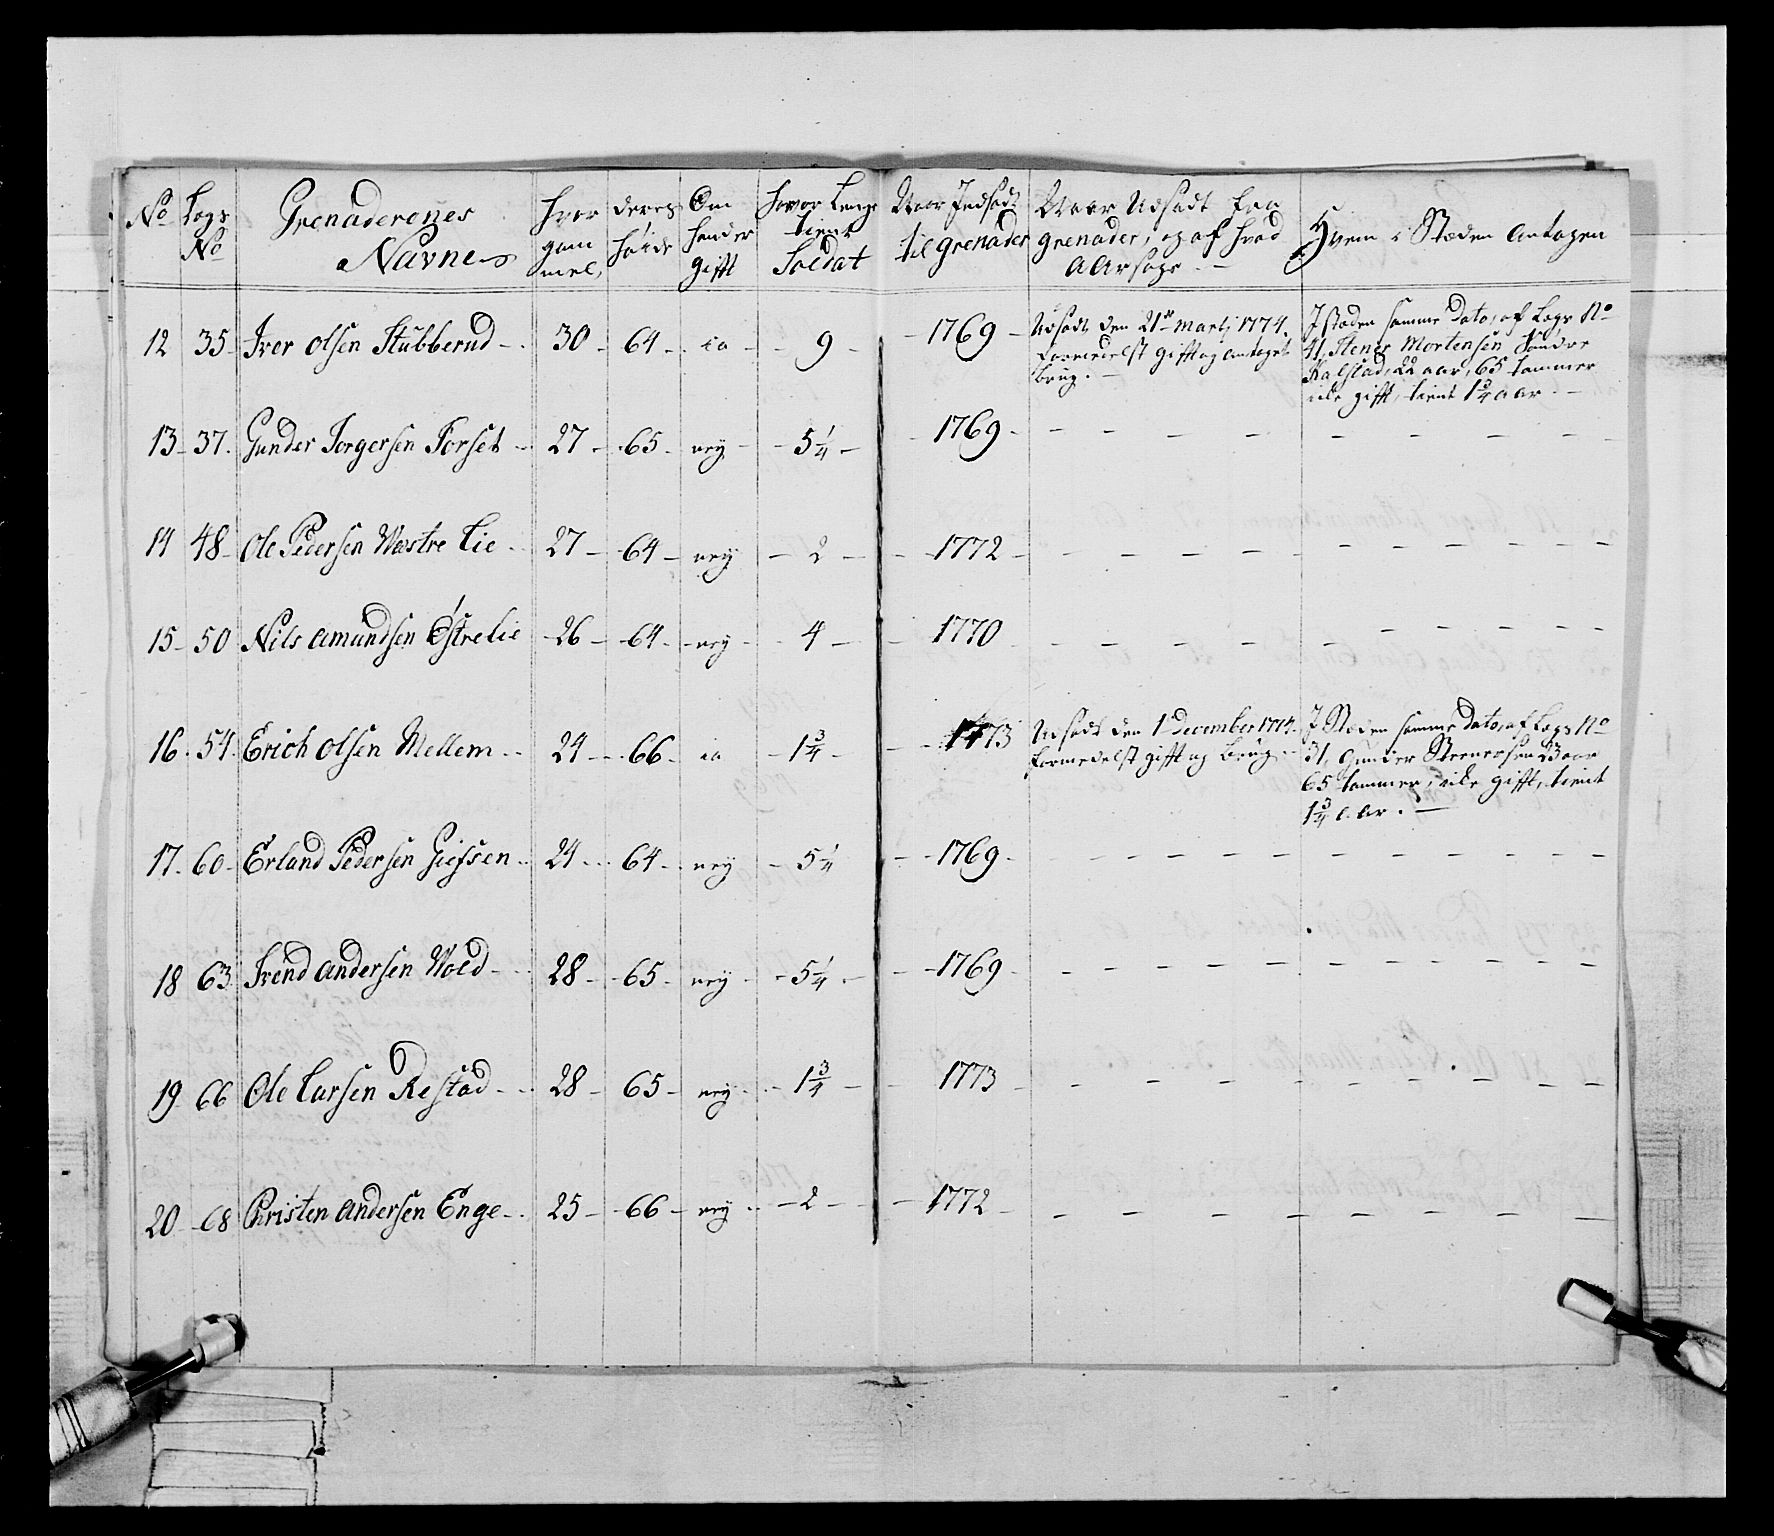 No Legs No Grenaderenes Navne hvor gammel, deres høide Om hand er gifft hvor lenge tient Soldat Naar Indsadt til grenader Naar Udsadt fra grenader, og af hvad Aarsage Hvem i Stæden Antagen
12 35 Iver Olsen Stubberud 30 64 ia 9 1769 Udsadt den 21de Martj 1774.
formedelst gifft og antaget
brug.
I Stæden samme Dato, af Legs No
41, Stener Mortensen Søndre
Kalstad, 22 aar, 65 tommer
icke gifft, tient 1 3/4 aar.
13 37. Gunder Torgersen Forset 27 65 ney 5 1/4 1769
14 48 Ole Pedersen Westre Lie 27 64 ney 2 1772
15 50 Nils Amundsen Østre Lie 26 64 ney 4 1770
16. 54. Erich Olsen Mellem 24 66 ia 1 3/4 1773 Udsadt den 1 December 1774.
formedelst gifft og brug.
I Stæden samme Dato, af Legs No
31, Gunder Steenersen 23 aar
65 tommer, icke gifft, tient
1 3/4 Aar.
17. 60 Erland Pedersen Giefsen 24 64 ney 5 1/4 1769
18 63 Trend Andersen Wold 28 65 ney 5 1/4 1769
19 66 Ole Larsen Restad 28 65 ney 1 3/4 1773
20 68 Christen Andersen Enge 25 66 ney 2 1772